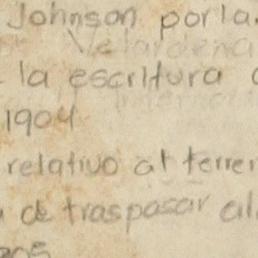 Johnson por la
Velardeña
la escritura
1904
relativo al terre
de traspasar al